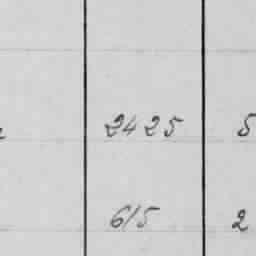 2425 5
615 2